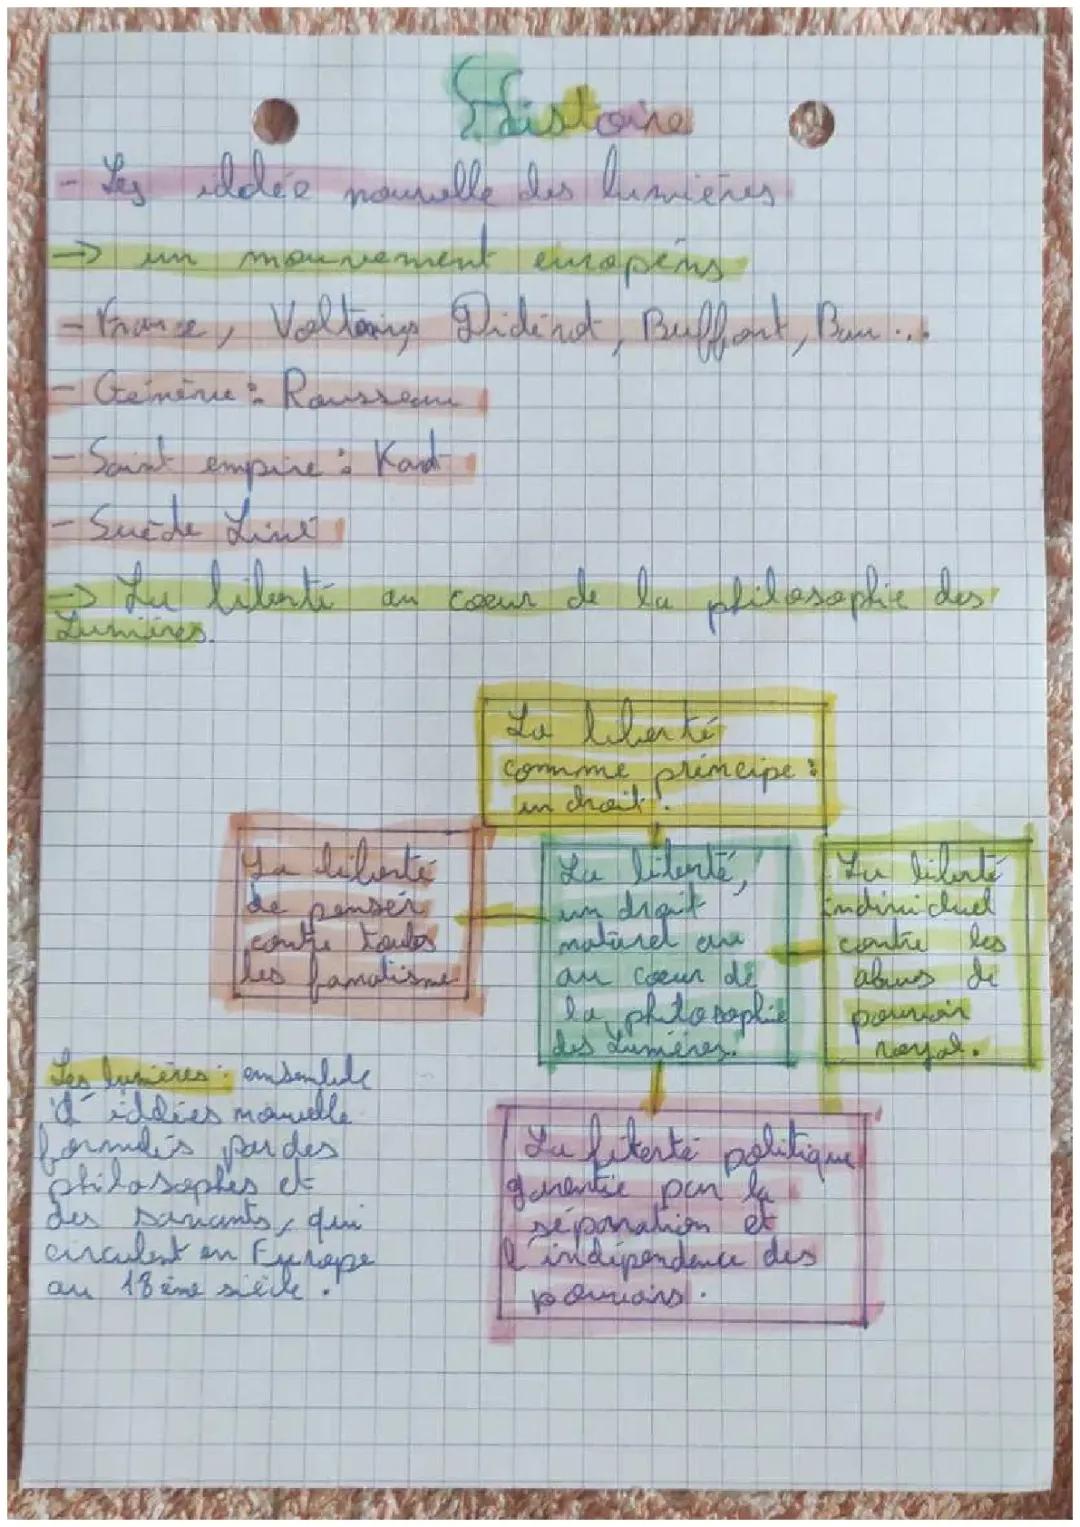 Histoire
- Les iddée nouvelle des lumières
-> un mouvement européns
- France, Voltaire, Didérot, Buffont,
- Génénie : Rousseau
- Saint empire : Kant
- Suède Liné
-> La liberté au coeur de la philosophie des
Lumières.
La liberté
comme principe :
un droit.
La liberté
de penser
contre toutes
les fanatisme
La liberté,
un droit
naturel au
au coeur de
la philosophie
des Lumières.
La liberté
individuel
contre les
abus de
pouvoir
royal.
Les lumières : ensemble
d'iddées nouvelle
formulés par des
philosophes et
des savants, qui
circulent en Europe
au 18ème siècle.
La liberté politique
garentie par la
séparation et
l'indépendance des
pouvoirs.